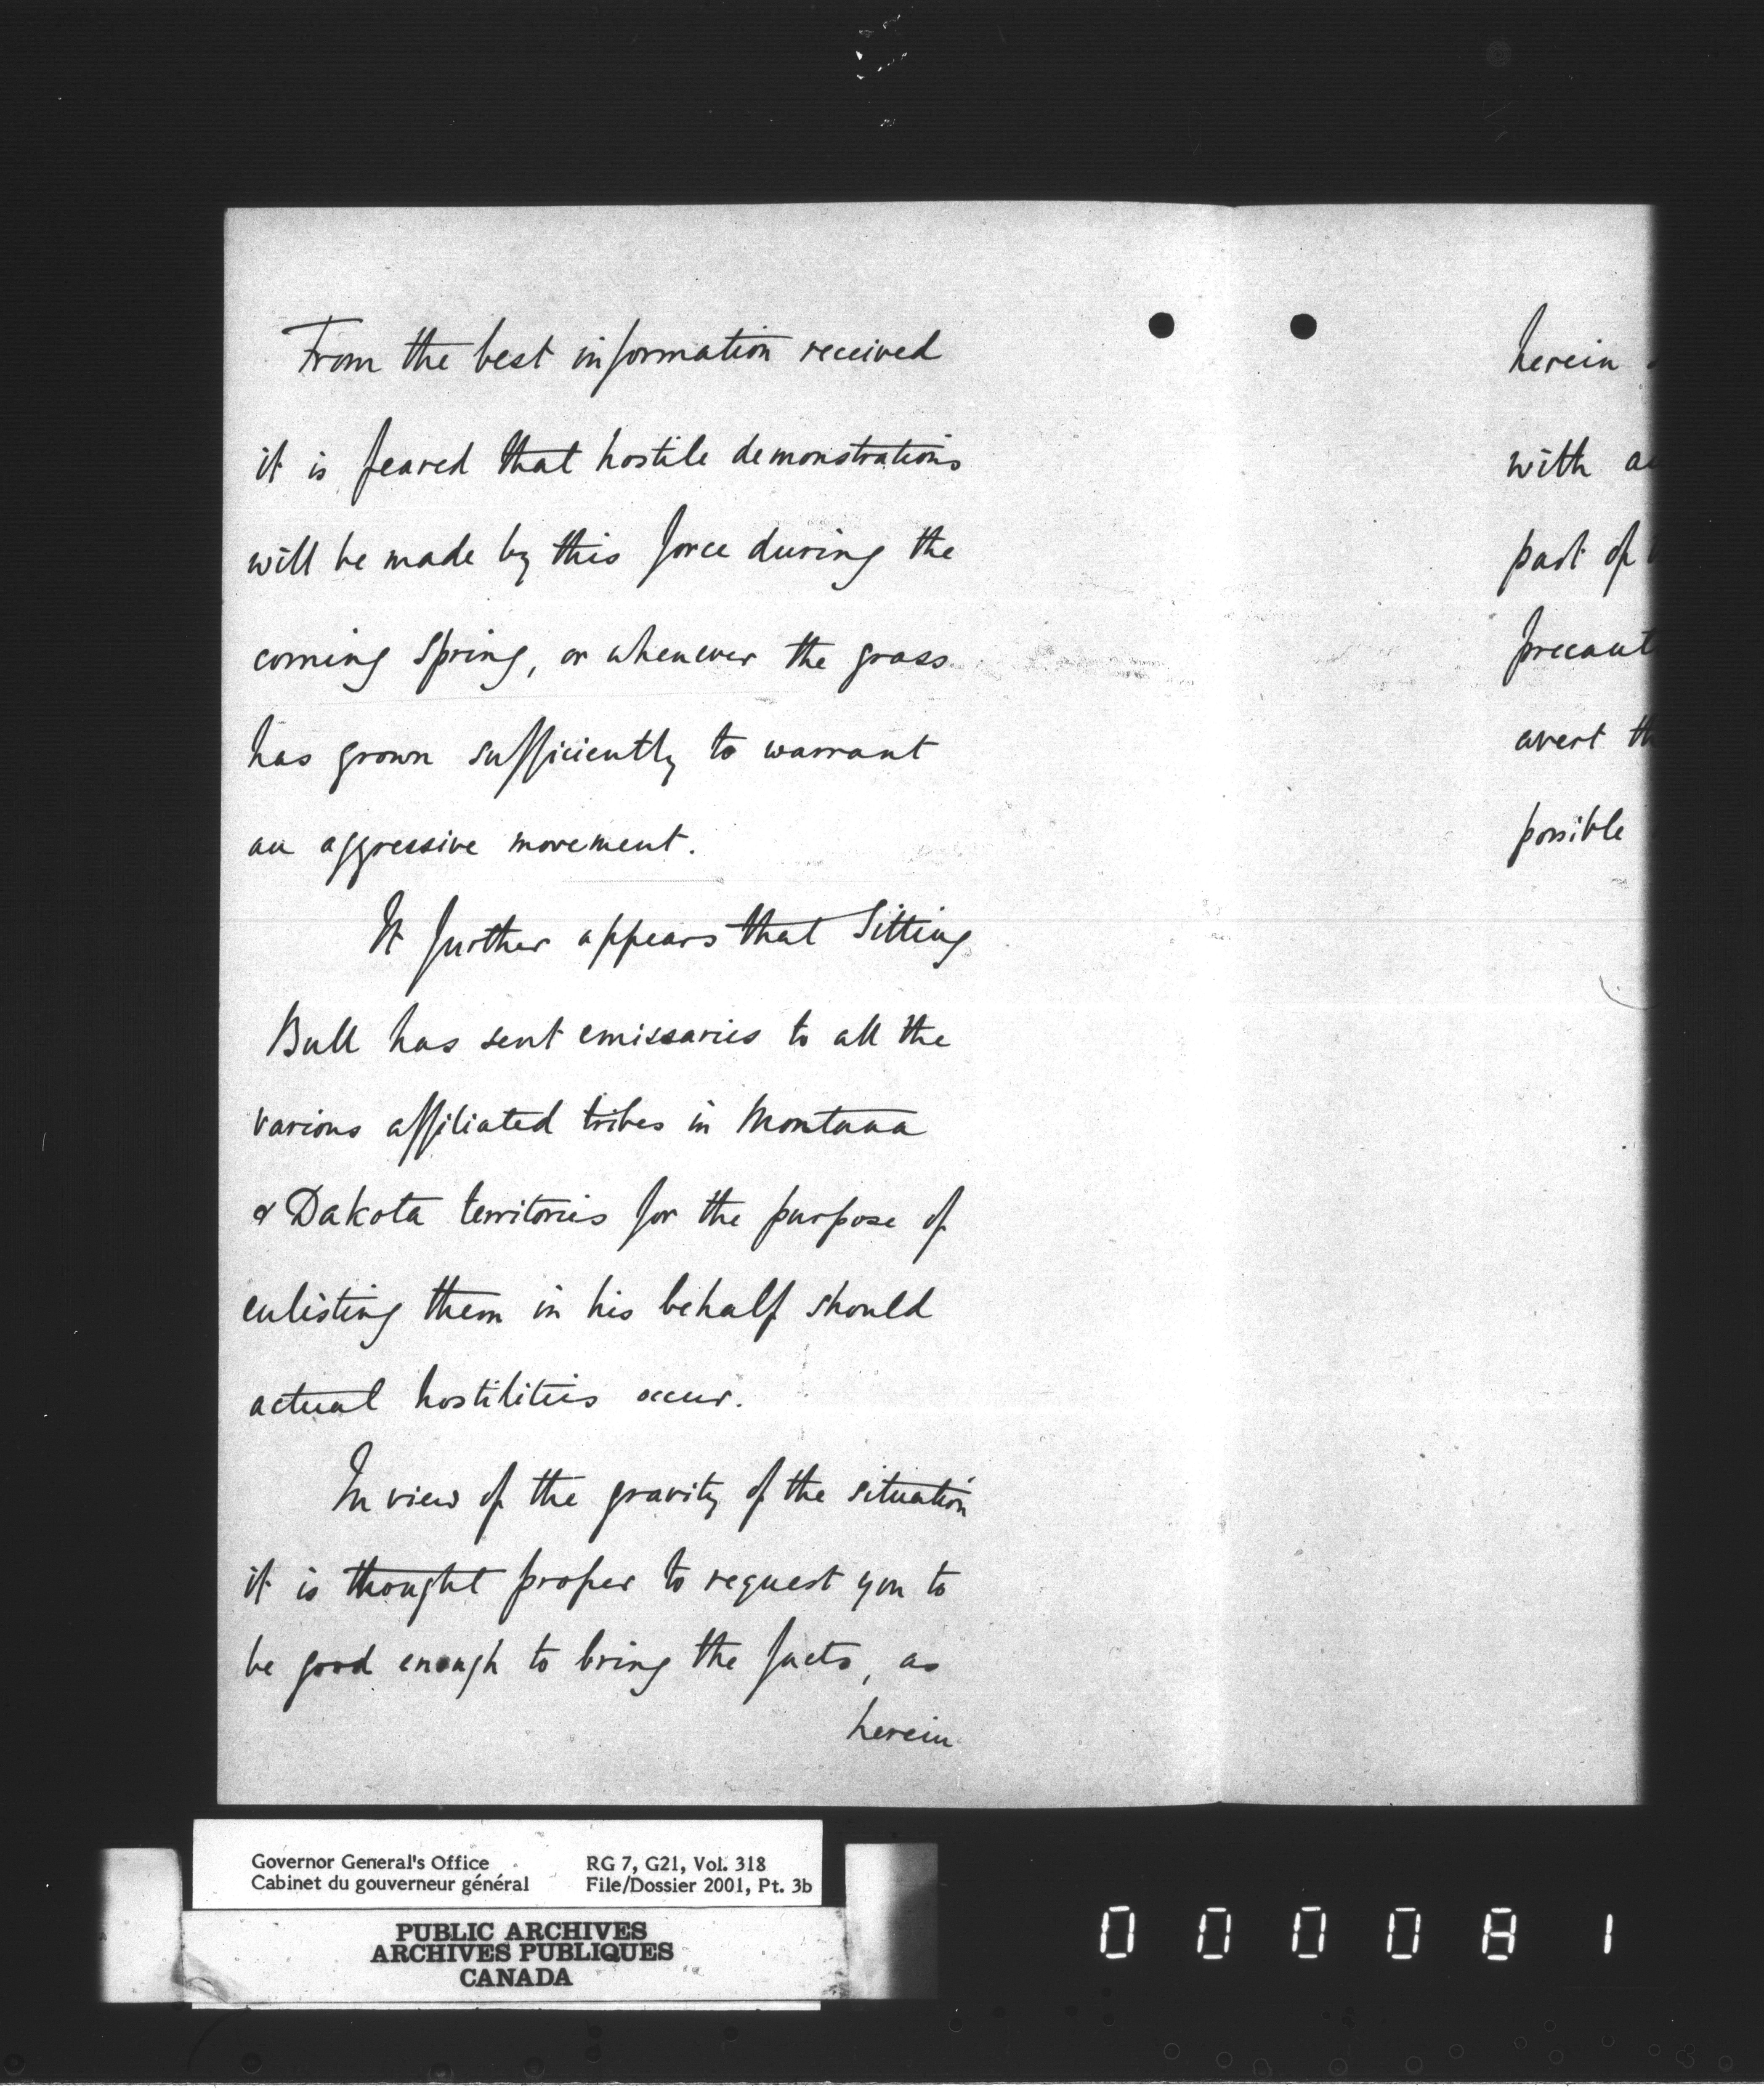 From the best information received
it is feared that hostile demonstrations
will be made by this force during the
coming Spring, or whenever the grass
has grown sufficiently to warrant
an aggressive movement.
It further appears that Sitting
Bull has sent emissaries to all the
various affiliated tribes in Montana
& Dakota territories for the purpose of
enlisting them in his behalf should
actual hostilities occur.
In view of the gravity of the situation
it is thought proper to request you to
be good enough to bring the facts, as
herein
herein
with
part of
precaut
avert th
possible
Governor General's Office
Cabinet du gouverneur général
RG 7, G21, Vol. 318
File/Dossier 2001, Pt. 3b
PUBLIC ARCHIVES
ARCHIVES PUBLIQUES
CANADA
000081